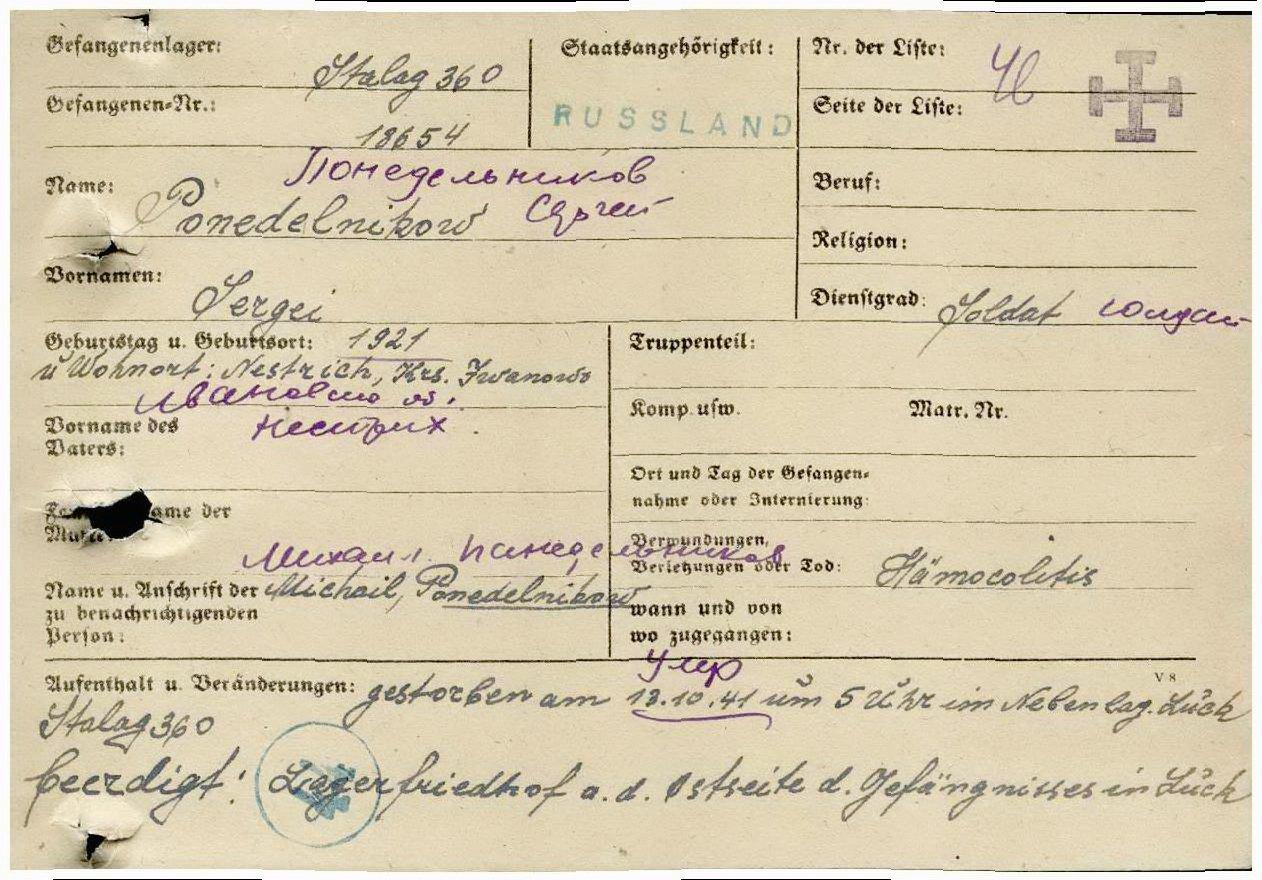 Gefangenenlager: Stalag 360
Staatsangehörigkeit: RUSSLAND
Nr. der Liste:
Seite der Liste:
Gefangenen-Nr.: 18654
Понедельников
Name: Ponedelnikow Сергей
Beruf:
Religion:
Vornamen: Sergei
Dienstgrad: Soldat солдат
Geburtstag u. Geburtsort: 1921
u Wohnort: Nestrich, Krs. Iwanowo
Нестрих
Vorname des
Vaters:
Truppenteil:
Komp. usw. Matr. Nr.
Ort und Tag der Gefangen-
nahme oder Internierung:
ame der
Михаил Панедельников
Name u. Anschrift der Michail, Ponedelnikow
zu benachrichtigenden
Person:
Verwundungen,
Verletzungen oder Tod: Hämocolitis
wann und von
wo zugegangen:
умер
V 8
Aufenthalt u. Veränderungen: gestorben am 13.10.41 um 5 Uhr im Nebenlag. Luck
Stalag 360
beerdigt: Lagerfriedhof a. d. Ostseite d. Gefängnisses in Luck